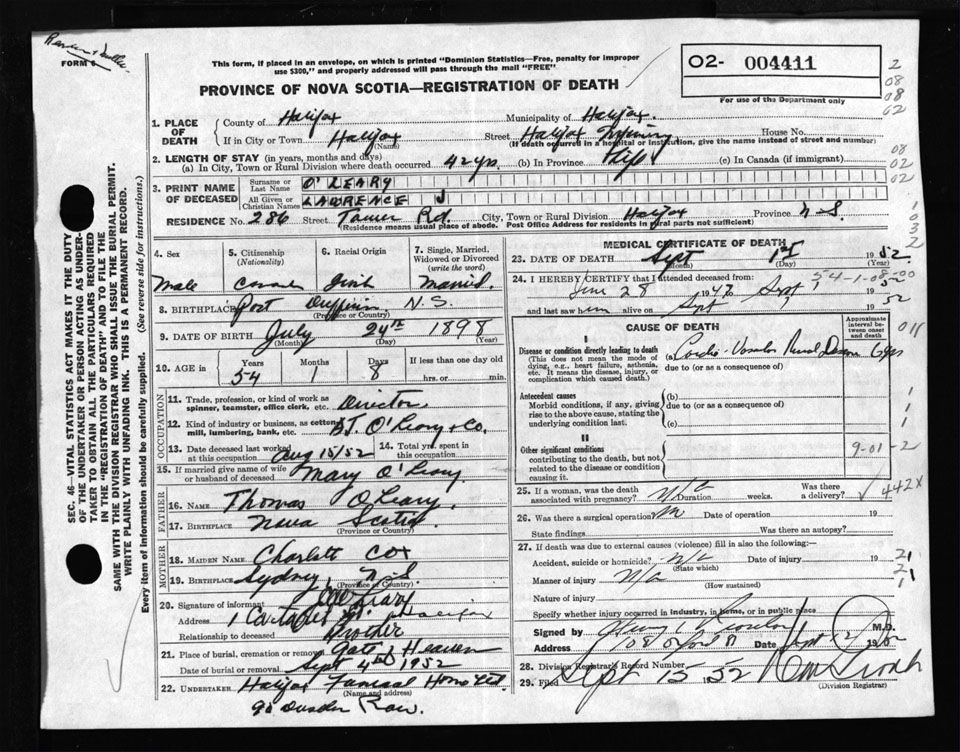 FORM 6
This form, if placed in an envelope, on which is printed "Dominion Statistics—Free, penalty for improper
use $300," and properly addressed will pass through the mail "FREE"
O2- 004411
For use of the Department only
PROVINCE OF NOVA SCOTIA—REGISTRATION OF DEATH
2
08
08
02
1. PLACE OF DEATH
County of Halifax Municipality of Halifax.
If in City or Town Halifax (Name) Street Halifax Infirmary House No.
(If death occurred in a hospital or institution, give the name instead of street and number)
2. LENGTH OF STAY (in years, months and days)
(a) In City, Town or Rural Division where death occurred 42 yrs. (b) In Province Life (c) In Canada (if immigrant)
08
02
02
3. PRINT NAME OF DECEASED
Surname or Last Name O'LEARY
All Given or Christian Names LAWRENCE J
RESIDENCE No. 286 Street Tower Rd. City, Town or Rural Division Halifax Province N-S.
(Residence means usual place of abode. Post Office Address for residents in rural parts not sufficient)
1
0
3
2
4. Sex Male
5. Citizenship (Nationality)
6. Racial Origin Irish
7. Single, Married, Widowed or Divorced (write the word) Married.
8. BIRTHPLACE Port Dufferin N.S.
(Province or Country)
9. DATE OF BIRTH July (Month) 24th (Day) 1898 (Year)
10. AGE in Years 54 Months 1 Days 8 If less than one day old hrs. or min.
OCCUPATION
11. Trade, profession, or kind of work as spinner, teamster, office clerk, etc. Director
12. Kind of industry or business, as cotton mill, lumbering, bank, etc. O'Leary & Co.
13. Date deceased last worked at this occupation Aug 15/52
14. Total yrs. spent in this occupation
15. If married give name of wife or husband of deceased Mary O'Leary
FATHER
16. NAME Thomas O'Leary
17. BIRTHPLACE Nova Scotia
(Province or Country)
MOTHER
18. MAIDEN NAME Charlett Cox
19. BIRTHPLACE Sydney, N.S.
(Province or Country)
20. Signature of informant O'Leary
Address 1 St. Halifax
Relationship to deceased Brother
21. Place of burial, cremation or removal Gate of Heaven
Date of burial or removal Sept 4th 1952
22. UNDERTAKER Halifax Funeral Home Ltd.
(Name and address)
Row.
MEDICAL CERTIFICATE OF DEATH
23. DATE OF DEATH Sept (Month) 1st (Day) 1952. (Year)
54-1-08-00
24. I HEREBY CERTIFY that I attended deceased from:
June 28 1947 Sept 1 52
and last saw him alive on Sept 1 52
CAUSE OF DEATH
Approximate interval between onset and death
011
I
Disease or condition directly leading to death
(This does not mean the mode of dying, e.g., heart failure, asthenia, etc. It means the disease, injury, or complication which caused death.)
(a) Cardio-Vascular Renal Disease 6 yrs
due to (or as a consequence of)
Antecedent causes
Morbid conditions, if any, giving rise to the above cause, stating the underlying condition last.
(b)
due to (or as a consequence of)
(c)
1
1
1
II
Other significant conditions
contributing to the death, but not related to the disease or condition causing it.
9-01-2
25. If a woman, was the death associated with pregnancy? Duration weeks. Was there a delivery?
442X
26. Was there a surgical operation Date of operation 19
State findings Was there an autopsy?
27. If death was due to external causes (violence) fill in also the following:
Accident, suicide or homicide? (State which) Date of injury 19
Manner of injury (How sustained)
Nature of injury
2
2
1
1
Specify whether injury occurred in industry, in home, or in public place
Signed by M.D.
Address Date Sept 2 1952
28. Division Registrar's Record Number
29. Filed Sept 15 1952
(Division Registrar)
SEC. 46—VITAL STATISTICS ACT MAKES IT THE DUTY
OF THE UNDERTAKER OR PERSON ACTING AS UNDER-
TAKER TO OBTAIN ALL THE PARTICULARS REQUIRED
IN THE "REGISTRATION OF DEATH" AND TO FILE THE
SAME WITH THE DIVISION REGISTRAR WHO SHALL ISSUE THE BURIAL PERMIT.
WRITE PLAINLY WITH UNFADING INK. THIS IS A PERMANENT RECORD.
Every item of information should be carefully supplied. (See reverse side for instructions.)